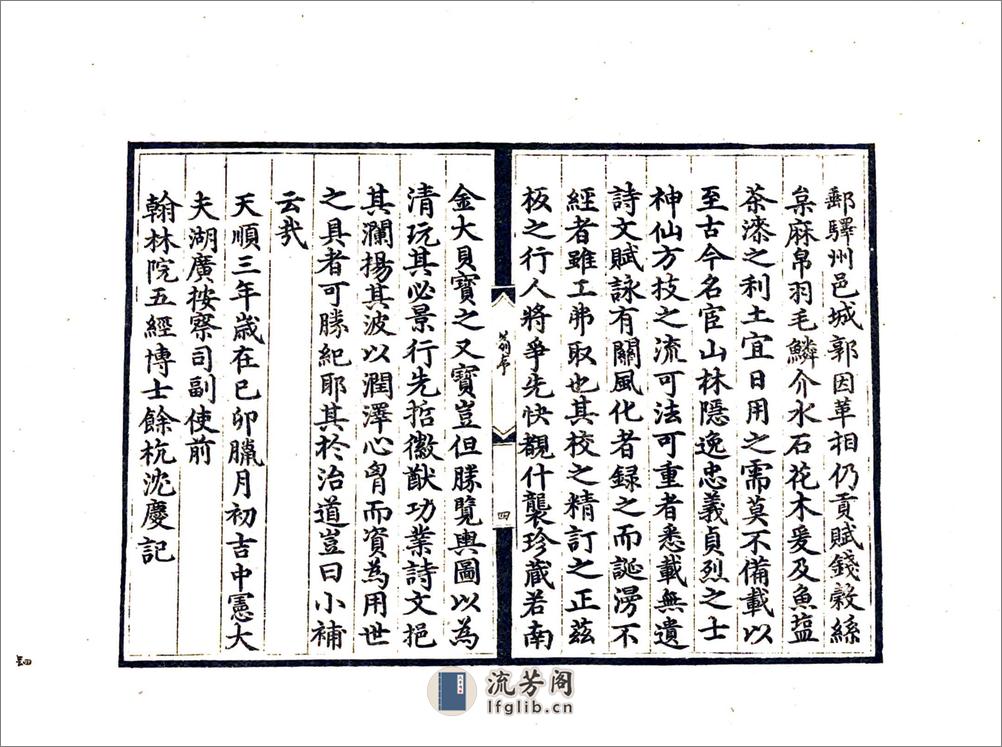 郵驛州邑城郭因革相仍貢賦錢穀絲
枲麻帛羽毛鱗介水石花木爰及魚塩
茶漆之利土宜日用之需莫不備載以
至古今名宦山林隱逸忠義貞烈之士
神仙方技之流可法可重者悉載無遺
詩文賦詠有關風化者録之而誕謾不
經者雖工弗取也其校之精訂之正茲
板之行人將爭先快覩什襲珍蔵若南
前序
四
金大貝寶之又寶豈但勝覽輿圖以為
清玩其必景行先哲徽猷功業詩文挹
其瀾揚其波以潤澤心胷而資為用世
之具者可勝紀耶其於治道豈曰小補
云㢤
天順三年歳在己卯臘月初吉中憲大
夫湖廣按察司副使前
翰林院五經博士餘杭沈慶記
流芳阁
lfglib.cn